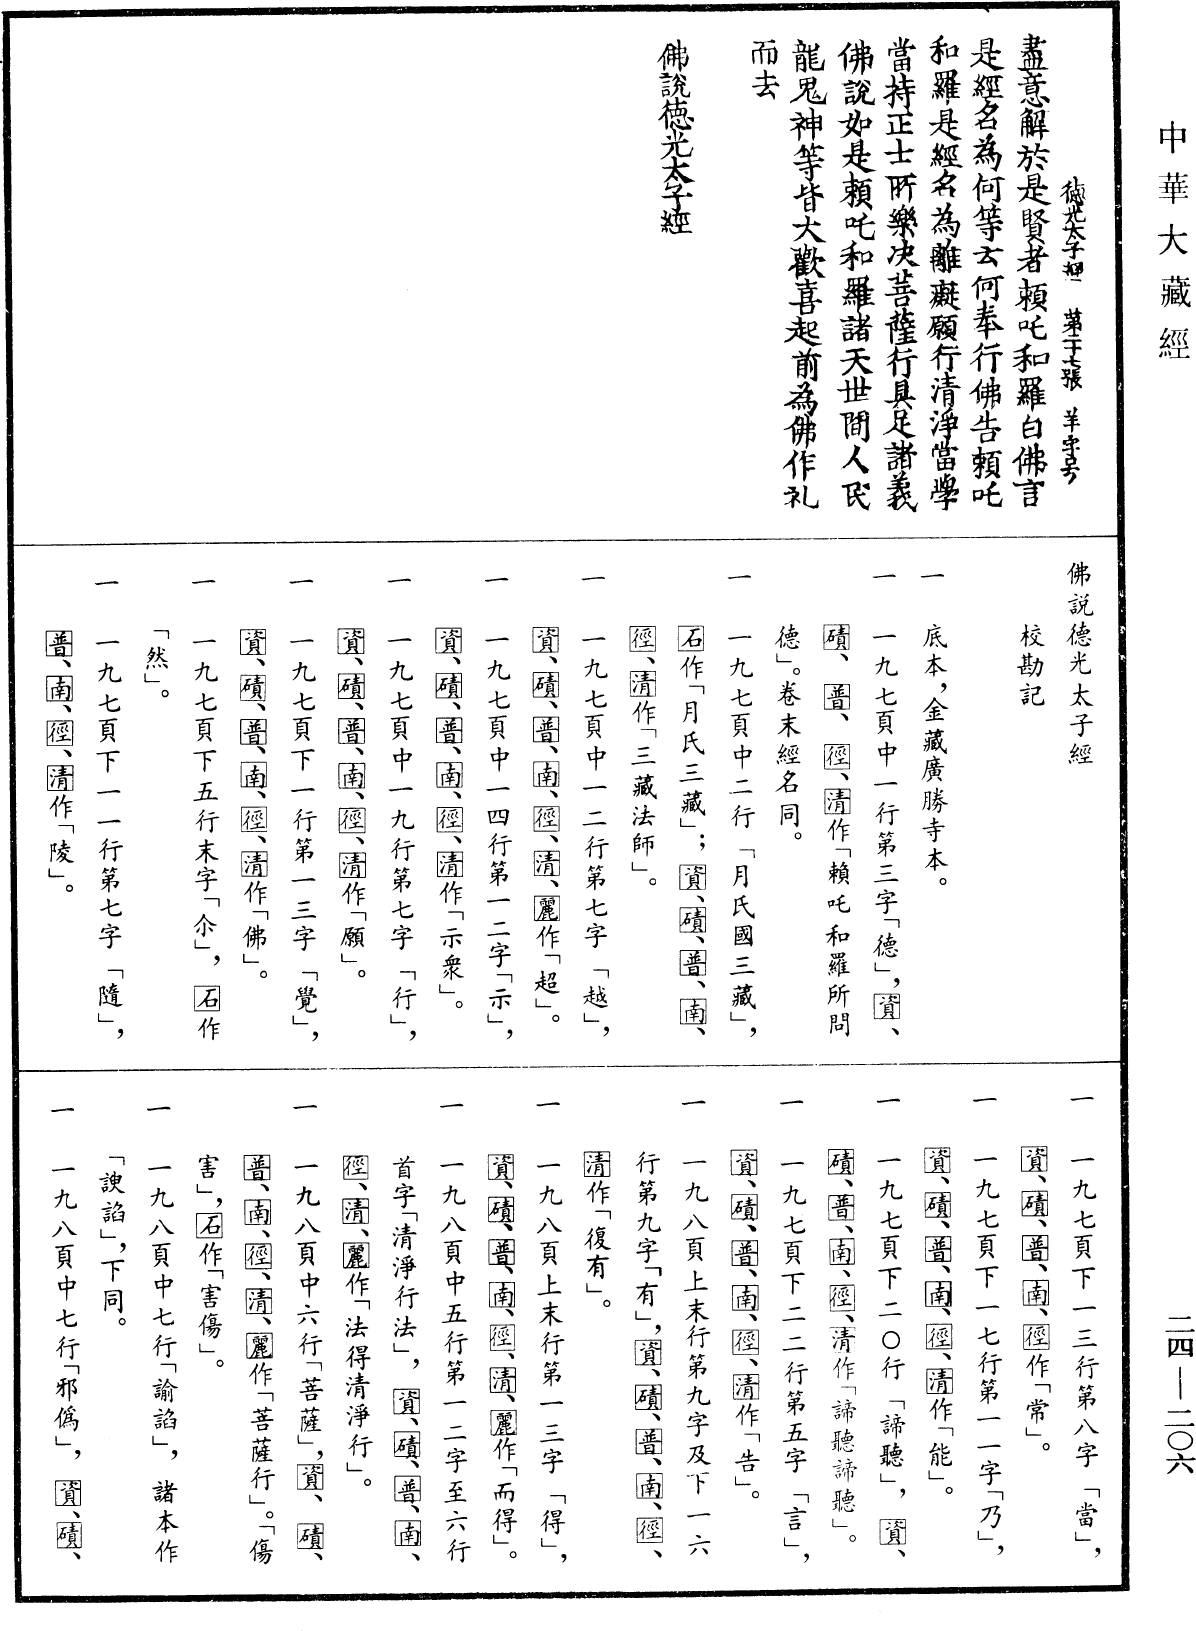 中華大藏經
二四—二〇六
德光太子經 第二十七張 羊字号
盡意解於是賢者賴吒和羅白佛言
是經名為何等云何奉行佛告賴吒
和羅是經名為離癡願行清淨當學
當持正士所樂决菩薩行具足諸義
佛說如是賴吒和羅諸天世間人民
龍鬼神等皆大歡喜起前為佛作礼
而去
佛說德光太子經
佛說德光太子經
校勘記
一 底本,金藏廣勝寺本。
一 一九七頁中一行第三字「德」,資、
磧、普、徑、清作「賴吒和羅所問
德」。卷末經名同。
一 一九七頁中二行「月氏國三藏」,
石作「月氏三藏」;資、磧、普、南、
徑、清作「三藏法師」。
一 一九七頁中一二行第七字「越」,
資、磧、普、南、徑、清、麗作「超」。
一 一九七頁中一四行第一二字「示」,
資、磧、普、南、徑、清作「示衆」。
一 一九七頁中一九行第七字「行」,
資、磧、普、南、徑、清作「願」。
一 一九七頁下一行第一三字「覺」,
資、磧、普、南、徑、清作「佛」。
一 一九七頁下五行末字「尒」,石作
「然」。
一 一九七頁下一一行第七字「隨」,
普、南、徑、清作「陵」。
一 一九七頁下一三行第八字「當」,
資、磧、普、南、徑作「常」。
一 一九七頁下一七行第一一字「乃」,
資、磧、普、南、徑、清作「能」。
一 一九七頁下二〇行「諦聽」,資、
磧、普、南、徑、清作「諦聽諦聽」。
一 一九七頁下二二行第五字「言」,
資、磧、普、南、徑、清作「告」。
一 一九八頁上末行第九字及下一六
行第九字「有」,資、磧、普、南、徑、
清作「復有」。
一 一九八頁上末行第一三字「得」,
資、磧、普、南、徑、清、麗作「而得」。
一 一九八頁中五行第一二字至六行
首字「清淨行法」,資、磧、普、南、
徑、清、麗作「法得清淨行」。
一 一九八頁中六行「菩薩」,資、磧、
普、南、徑、清、麗作「菩薩行」。「傷
害」,石作「害傷」。
一 一九八頁中七行「諭諂」,諸本作
「諛諂」,下同。
一 一九八頁中七行「邪僞」,資、磧、